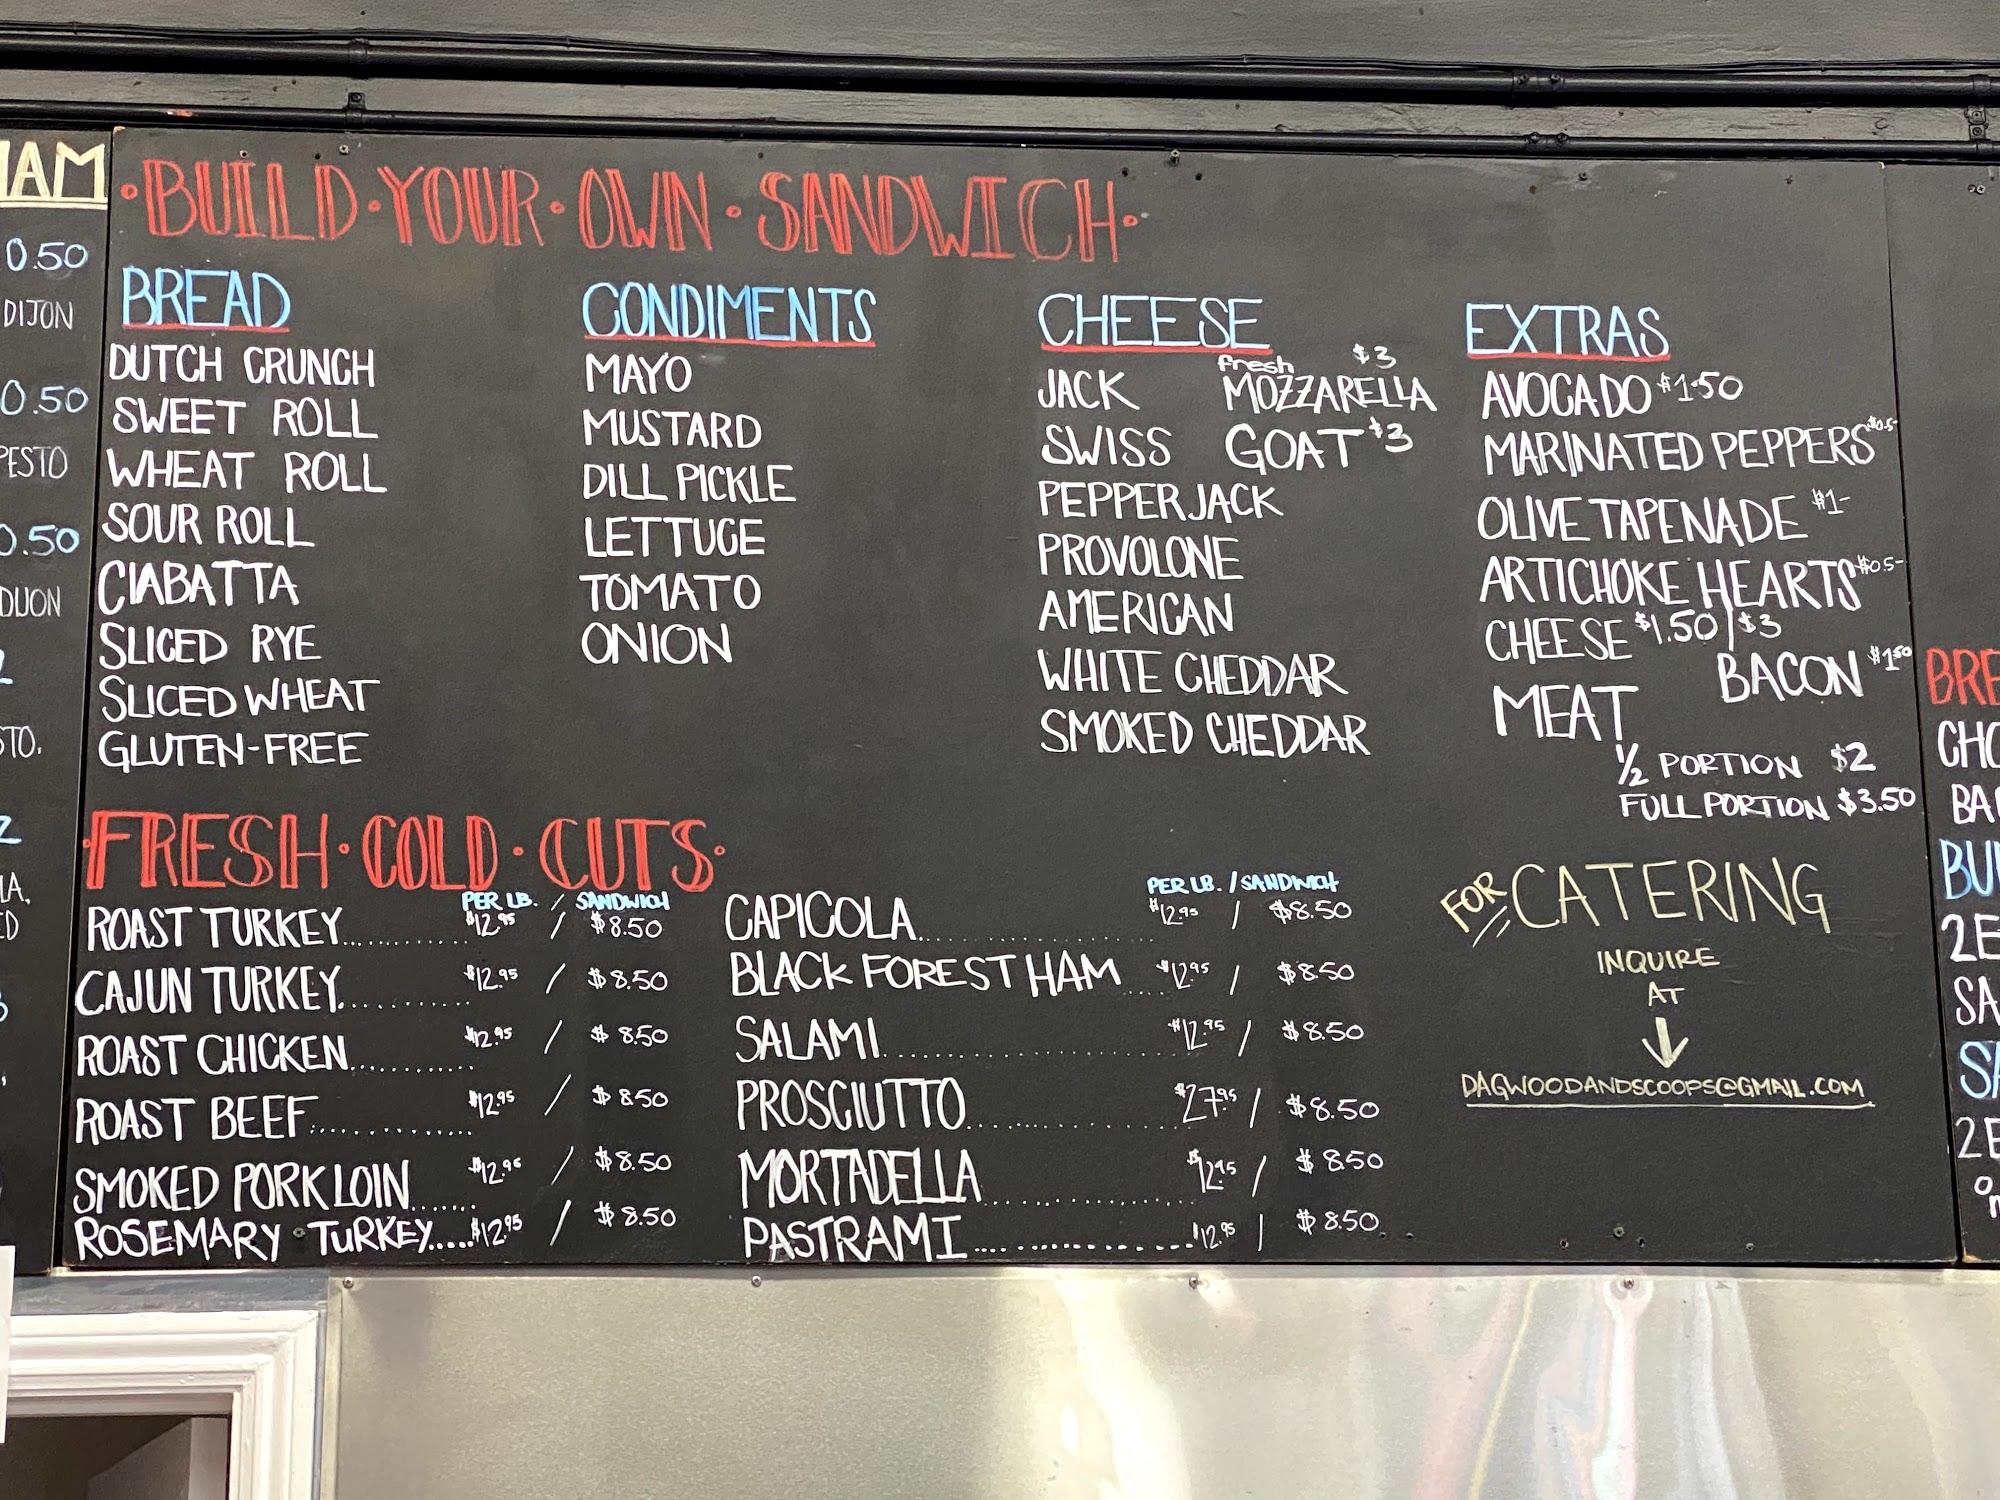 HAM
0.50
DIJON
0.50
PESTO
0.50
DIJON
STO.
·BUILD·YOUR·OWN·SANDWICH·
BREAD
DUTCH CRUNCH
SWEET ROLL
WHEAT ROLL
SOUR ROLL
CIABATTA
SLICED RYE
SLICED WHEAT
GLUTEN-FREE
CONDIMENTS
MAYO
MUSTARD
DILL PICKLE
LETTUCE
TOMATO
ONION
CHEESE
JACK
SWISS
PEPPERJACK
PROVOLONE
AMERICAN
WHITE CHEDDAR
SMOKED CHEDDAR
fresh $3
MOZZARELLA
GOAT $3
EXTRAS
AVOCADO $1.50
MARINATED PEPPERS $0.5-
OLIVE TAPENADE $1-
ARTICHOKE HEARTS $0.5-
CHEESE $1.50/$3
BACON $1.50
MEAT
1/2 PORTION $2
FULL PORTION $3.50
·FRESH·COLD·CUTS·
PER LB. / SANDWICH
ROAST TURKEY........... $12.95 / $8.50
CAJUN TURKEY........... $12.95 / $8.50
ROAST CHICKEN........... $12.95 / $8.50
ROAST BEEF.............. $12.95 / $8.50
SMOKED PORK LOIN....... $12.95 / $8.50
ROSEMARY TURKEY..... $12.95 / $8.50
PER LB. / SANDWICH
CAPICOLA................... $12.95 / $8.50
BLACK FOREST HAM .... $12.95 / $8.50
SALAMI....................... $12.95 / $8.50
PROSCIUTTO................ $27.95 / $8.50
MORTADELLA............... $12.95 / $8.50
PASTRAMI.................. $12.95 / $8.50
FOR CATERING
INQUIRE
AT
DAGWOODANDSCOOPS@GMAIL.COM
BRE
CHO
BAC
BU
2E
SA
SA
2E